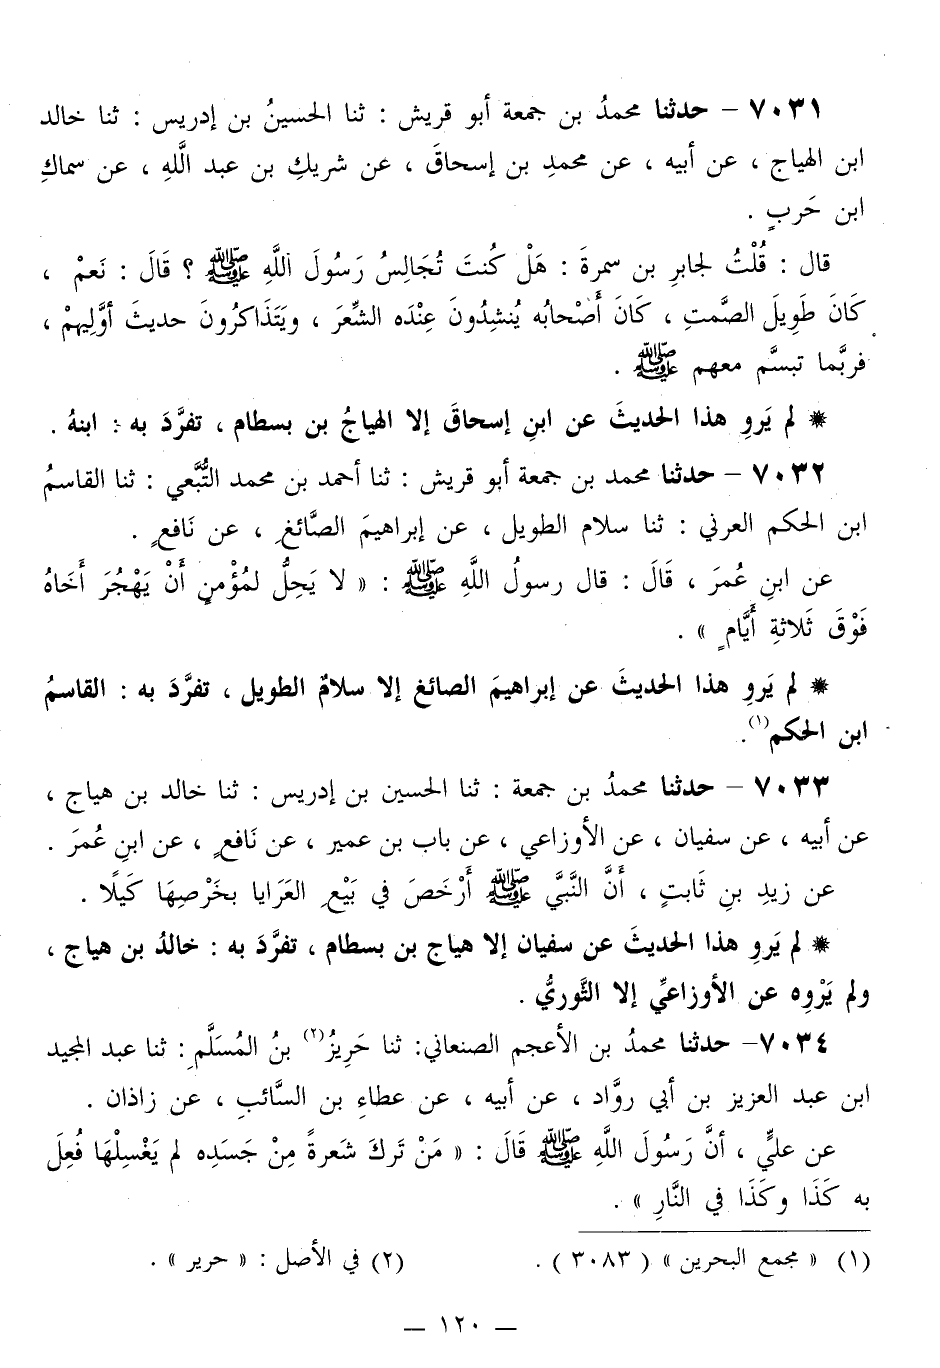 ٧٠٣١ – حدثنا محمدُ بن جمعة أبو قريش : ثنا الحسينُ بن إدريس : ثنا خالد
ابن الهياج ، عن أبيه ، عن محمدِ بن إسحاقَ ، عن شريكِ بن عبد اللَّهِ ، عن سماكِ
ابن حَربٍ .
قال : قُلْتُ لجابرِ بن سمرةَ : هَلْ كُنتَ تُجَالِسُ رَسُولَ اللَّهِ ﷺ ؟ قَالَ : نَعمْ ،
كَانَ طَوِيلَ الصَّمتِ ، كَانَ أَصْحابُه يُنشِدُونَ عِنْدَه الشِّعرَ ، ويَتَذَاكرُونَ حديثَ أوَّلِيهمْ ،
فربَّما تبسَّم معهم ﷺ .
❋ لم يَروِ هذا الحديثَ عن ابنِ إسحاقَ إلا الهياجُ بن بسطام ، تفرَّدَ به : ابنهُ .
٧٠٣٢ – حدثنا محمد بن جمعة أبو قريش : ثنا أحمد بن محمد التُّبَّعي : ثنا القاسمُ
ابن الحكم العرني : ثنا سلام الطويل ، عن إبراهيمَ الصَّائغِ ، عن نَافعٍ .
عن ابنِ عُمرَ ، قَالَ : قال رسولُ اللَّهِ ﷺ : « لا يَحِلُّ لمُؤْمنٍ أَنْ يَهْجُرَ أَخَاهُ
فَوْقَ ثَلاثةِ أَيَّامٍ » .
❋ لم يَروِ هذا الحديثَ عن إبراهيمَ الصائغِ إلا سلامٌ الطويل ، تفرَّدَ به : القاسمُ
ابن الحكم(١).
٧٠٣٣ – حدثنا محمدُ بن جمعة : ثنا الحسين بن إدريس : ثنا خالد بن هياج ،
عن أبيه ، عن سفيان ، عن الأوزاعي ، عن باب بن عمير ، عن نَافعٍ ، عن ابنِ عُمرَ .
عن زيدِ بنِ ثَابتٍ ، أَنَّ النَّبيَّ ﷺ أَرْخَصَ في بَيْعِ العَرَايا بخَرْصِهَا كَيلًا .
❋ لم يَروِ هذا الحديثَ عن سفيان إلا هياج بن بسطام ، تفرَّدَ به : خالدُ بن هياج ،
ولم يَرْوِه عن الأوزاعيِّ إلا الثَّوريُّ .
٧٠٣٤– حدثنا محمدُ بن الأعجم الصنعاني: ثنا حَرِيزُ(٢) بنُ المُسَلَّمِ: ثنا عبد المجيد
ابن عبد العزيز بن أبي روَّاد ، عن أبيه ، عن عطاءِ بن السَّائبِ ، عن زاذان .
عن عليٍّ ، أنَّ رَسُولَ اللَّهِ ﷺ قَالَ : « مَنْ تَركَ شَعرةً مِنْ جَسَدِه لم يَغْسِلْهَا فُعِلَ
به كَذَا وكَذَا في النَّارِ » .
(١) « مجمع البحرين » ( ٣٠٨٣ ) . (٢) في الأصل : « حرير » .
— ١٢٠ —